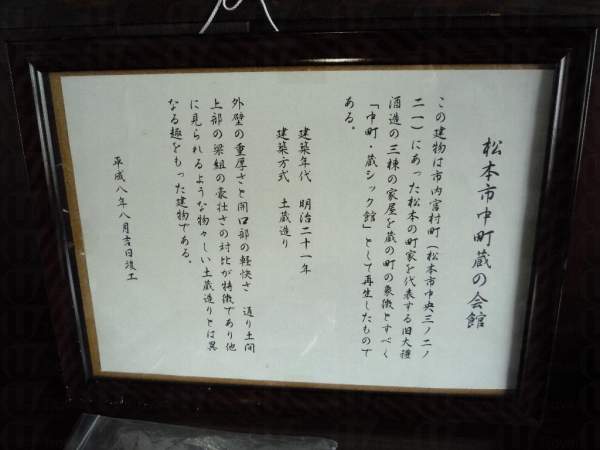 松本市中町蔵の会館
この建物は市内宮村町（松本市中央三ノ二ノ
二一）にあった松本の町家を代表する旧大禮
酒造の三棟の家屋を蔵の町の象徴とすべく
「中町・蔵シック館」として再生したもので
ある。
建築年代　明治二十一年
建築方式　土蔵造り
外壁の重厚さと開口部の軽快さ　通り土間
上部の梁組の豪壮さの対比が特徴であり他
に見られるような物々しい土蔵造りとは異
なる趣をもった建物である。
平成八年八月吉日竣工